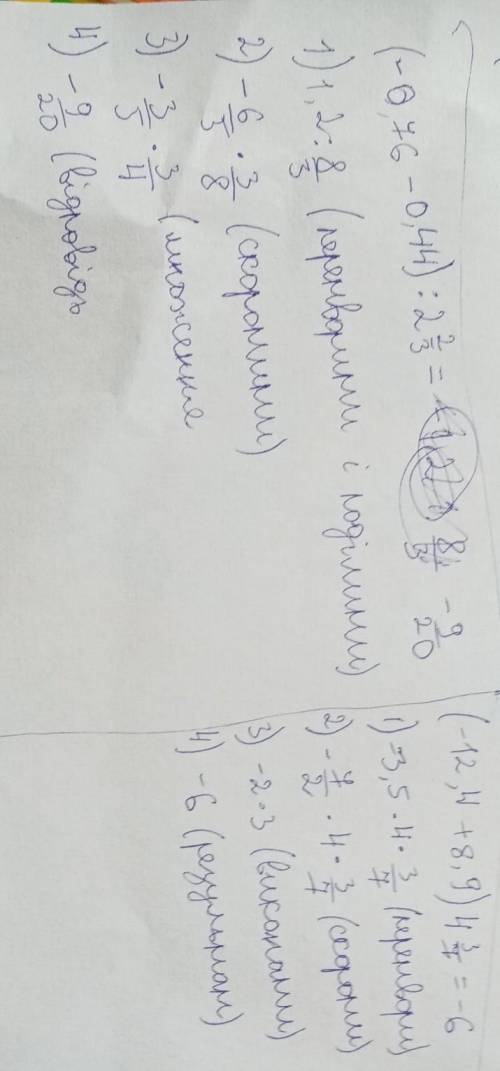 (-0,76 - 0,44) : 2 2/3 = - 9/20
1) 1,2 : 8/3 (перетворити і поділити)
2) - 6/5 · 3/8 (скоротити)
3) - 3/5 · 3/4 (множення
4) - 9/20 (відповідь
(-12,4 + 8,9) 4 3/7 = -6
1) -3,5 · 4 · 3/7 (перетвори)
2) - 7/2 · 4 · 3/7
3) -2 · 3 (виконати)
4) -6 (результат)